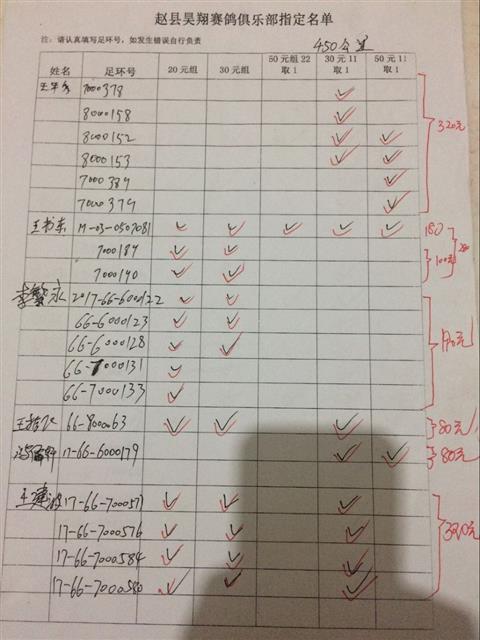 赵县昊翔赛鸽俱乐部指定名单
注：请认真填写足环号，如发生错误自行负责
450公里
姓名 足环号 20元组 30元组 50元组22取1 30元11取1 50元11取1
7000378 ✓
8000158 ✓
8000152 ✓ ✓ 320元
8000153 ✓ ✓
7000389 ✓
7000379 ✓
王书东 17-03-0507081 ✓ ✓ ✓ ✓ ✓ 180
7000189 ✓ ✓ 100元
7000190 ✓ ✓
李繁永 2017-66-6000122 ✓ ✓
66-6000123 ✓ ✓
66-6000128 ✓ ✓ 190元
66-7000131 ✓
66-7000133 ✓
66-8000063 ✓ ✓ ✓ 80元
17-66-6000179 ✓ ✓ 80元
王建波 17-66-7000571 ✓ ✓ ✓
17-66-7000576 ✓ ✓ ✓ 320元
17-66-7000584 ✓ ✓ ✓
17-66-7000580 ✓ ✓ ✓